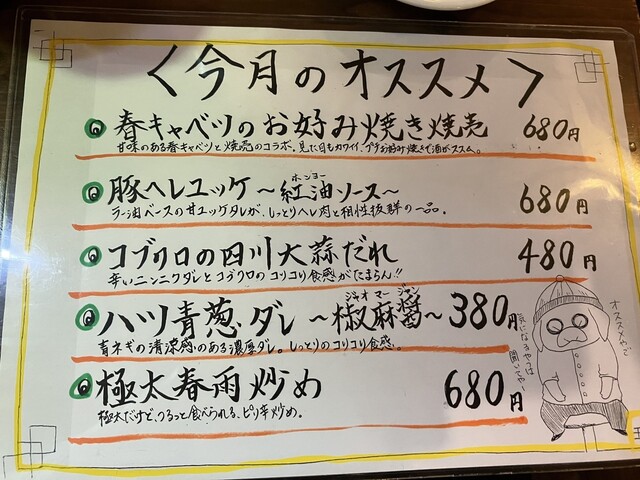 ＜今月のオススメ＞
春キャベツのお好み焼き焼売 680円
甘味のある春キャベツと焼売のコラボ。見た目もカワイイ、プチお好み焼きで酒がススム。
ホンヨー
豚ヘレユッケ～紅油ソース～ 680円
ラー油ベースの甘ユッケダレが、しっとりヘレ肉と相性抜群の一品。
コブクロの四川大蒜だれ 480円
辛いニンニクダレとコブクロのコリコリ食感がたまらん!!
ジャオ マー ジャン
ハツ青葱ダレ～椒麻醤～ 380円
青ネギの清涼感のある濃厚ダレ。しっとりのコリコリ食感。
極太春雨炒め 680円
極太だけど、つるっと食べられる、ピリ辛炒め。
オススメやで
気になるやつは
聞いてやー